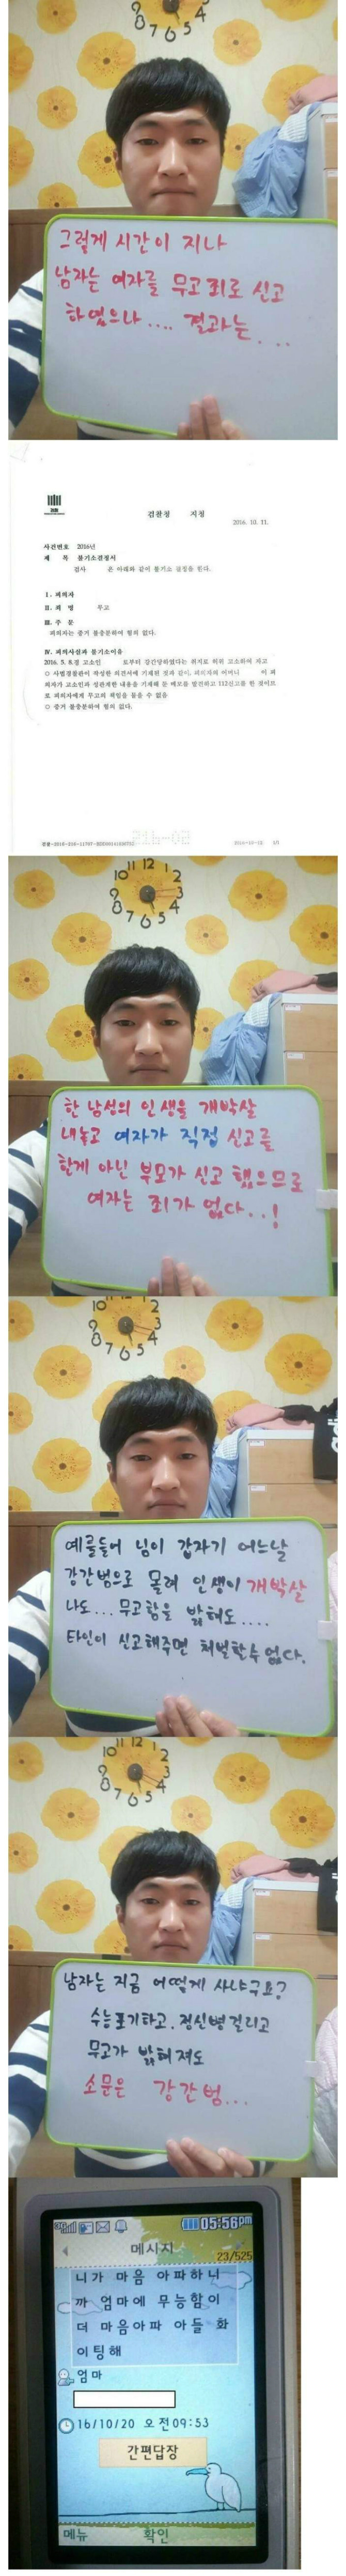 그렇게 시간이 지나
남자는 여자를 무고죄로 신고
하였으나.... 결과는....
검찰
검찰청 지청
2016. 10. 11.
사건번호 2016년
제 목 불기소결정서
검사 은 아래와 같이 불기소 결정을 한다.
I. 피의자
II. 죄 명 무고
III. 주 문
피의자는 증거 불충분하여 혐의 없다.
IV. 피의사실과 불기소이유
2016. 5. 8.경 고소인 로부터 강간당하였다는 취지로 허위 고소하여 무고
○ 사법경찰관이 작성한 의견서에 기재된 것과 같이, 피의자의 어머니 이 피
의자가 고소인과 성관계한 내용을 기재해 둔 메모를 발견하고 112신고를 한 것이므
로 피의자에게 무고의 책임을 물을 수 없음
○ 증거 불충분하여 혐의 없다.
216-02
2016-10-12 1/1
한 남성의 인생을 개박살
내놓고 여자가 직접 신고를
한게 아닌 부모가 신고 했으므로
여자는 죄가 없다..!
예를들어 님이 갑자기 어느날
강간범으로 몰려 인생이 개박살
나도... 무고함을 밝혀도....
타인이 신고해주면 처벌할수 없다.
남자는 지금 어떻게 사냐구요?
수능포기하고. 정신병걸리고
무고가 밝혀져도
소문은 강간범...
05:56pm
메시지
23/525
니가 마음 아파하니
까 엄마에 무능함이
더 마음아파 아들 화
이팅해
엄마
16/10/20 오전09:53
간편답장
메뉴 확인